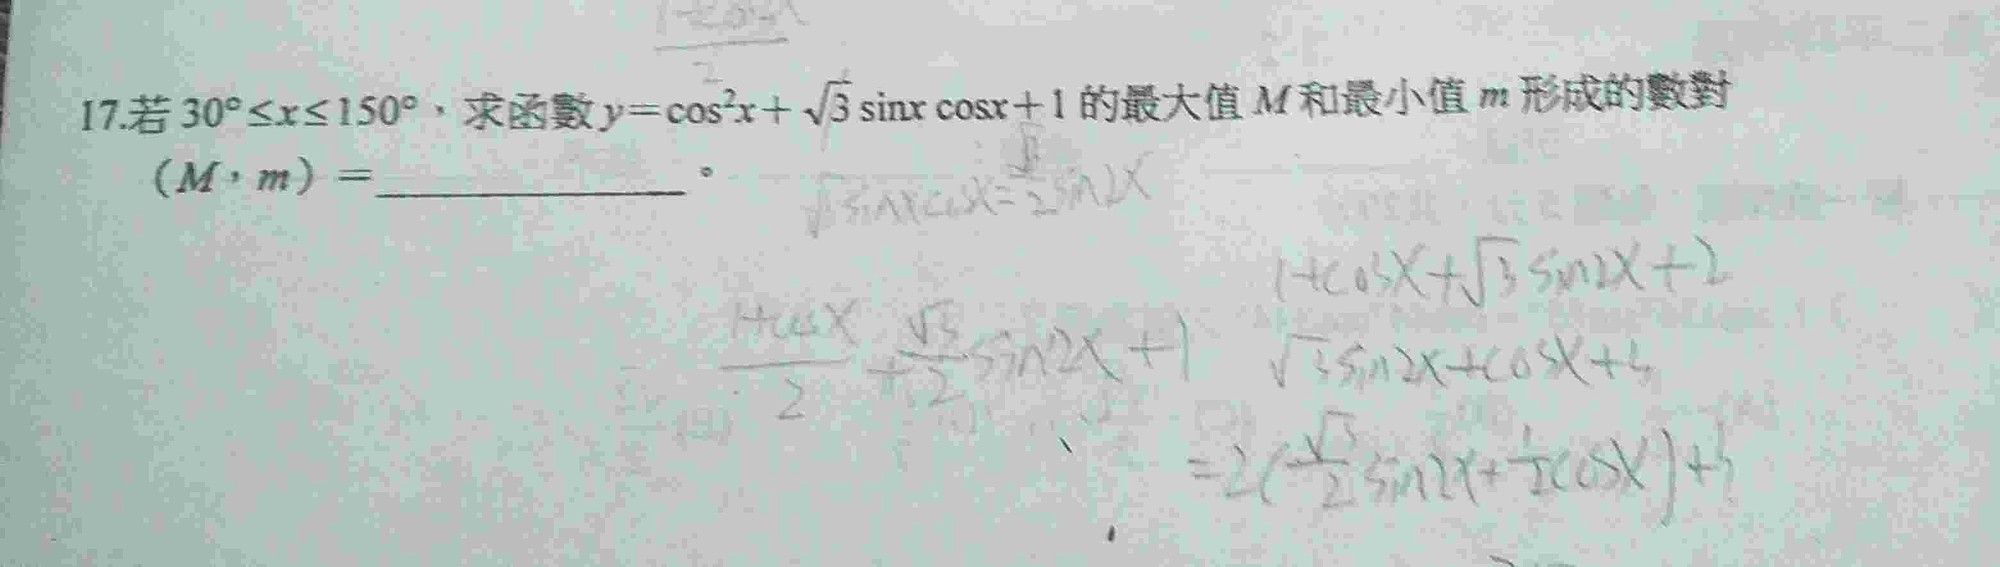 1+cosX
2
17.若 30°≤x≤150°，求函數 y=cos²x+√3 sinx cosx+1 的最大值 M 和最小值 m 形成的數對
(M，m)=__________。
√3 sinxcosX=√3/2 sin2X
1+cosX+√3 sin2X+2
(1+cosX)/2+√3/2 sin2X+1
√3sin2X+cosX+3
=2(√3/2 sin2X+1/2 cosX)+3